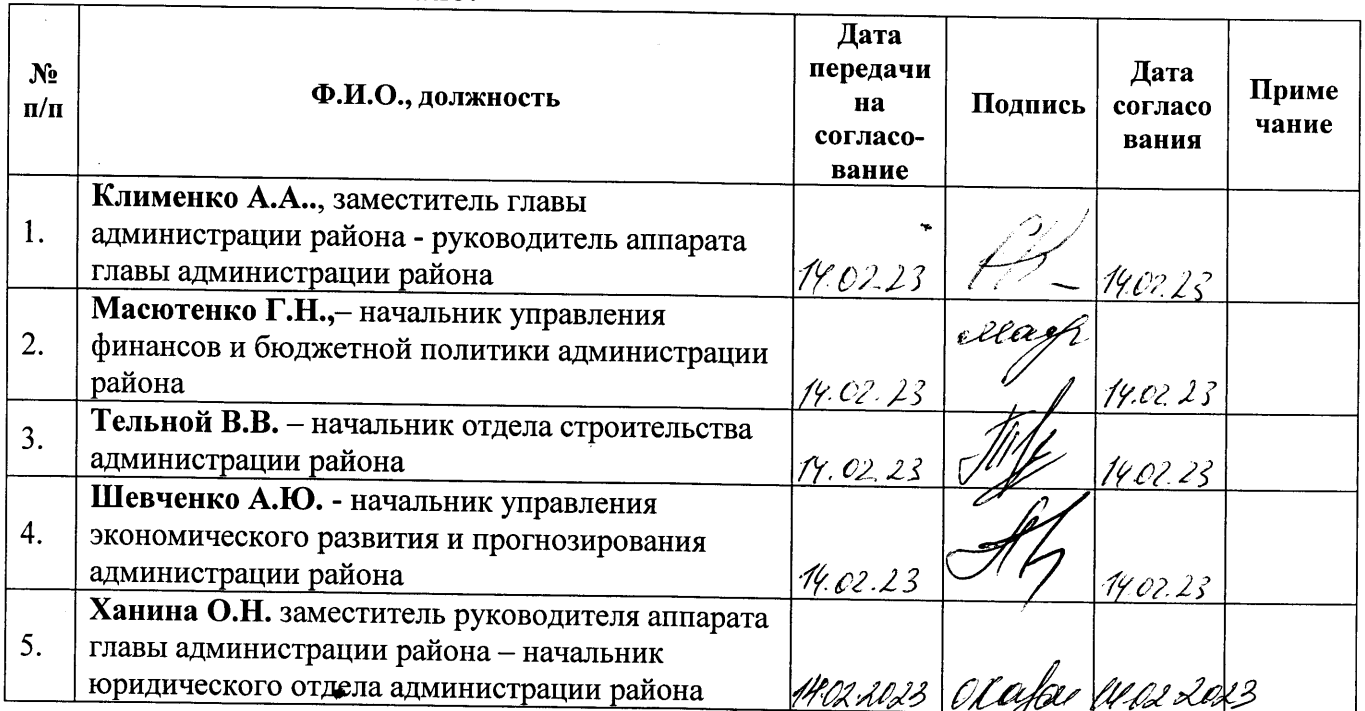 №
п/п
Ф.И.О., должность
Дата
передачи
на
согласо-
вание
Подпись
Дата
согласо
вания
Приме
чание
1.
Клименко А.А.., заместитель главы
администрации района - руководитель аппарата
главы администрации района
14.02.23
14.02.23
2.
Масютенко Г.Н.,– начальник управления
финансов и бюджетной политики администрации
района
14.02.23
14.02.23
3.
Тельной В.В. – начальник отдела строительства
администрации района
14.02.23
14.02.23
4.
Шевченко А.Ю. - начальник управления
экономического развития и прогнозирования
администрации района
14.02.23
14.02.23
5.
Ханина О.Н. заместитель руководителя аппарата
главы администрации района – начальник
юридического отдела администрации района
14.02.2023
14.02.2023